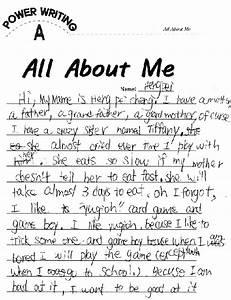 POWER WRITING
A
All About Me
All About Me
Name:
Hi, My Name is Heng pei cheng, I have a mother,
a father, a grand father, a grandmother, of curse
I have a crazy sister named Tiffany, the
she almost cried ever time I play with
her. She eats so slow if my mother
doesn't tell her to eat fast, She will
take almost 3 days to eat, oh I forgot,
I like to "yugioh" card games and
game boy. I like yugioh, because I like to
trick some one and game boy because when I was
bored I will play the game (except when
when I go to school.) Because I am
bad at it, I want to be good at it